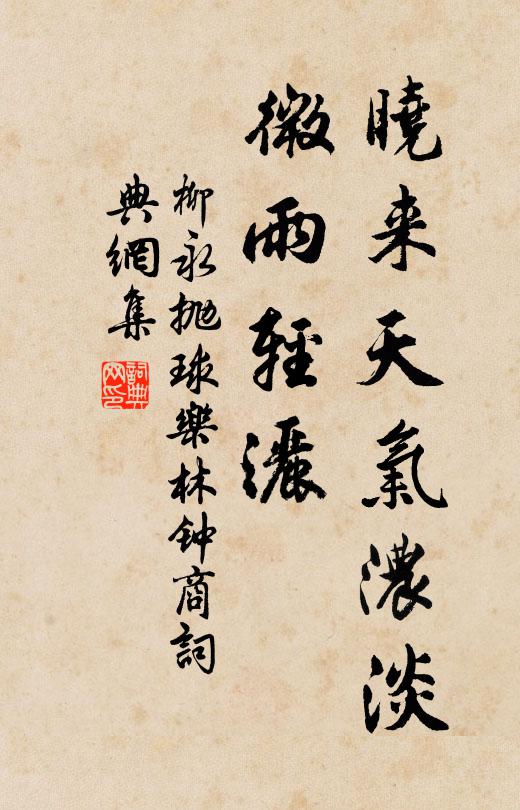 曉来天氣濃淡
微雨輕灑
柳永抛球樂林钟商詞
典網集
詞典网印